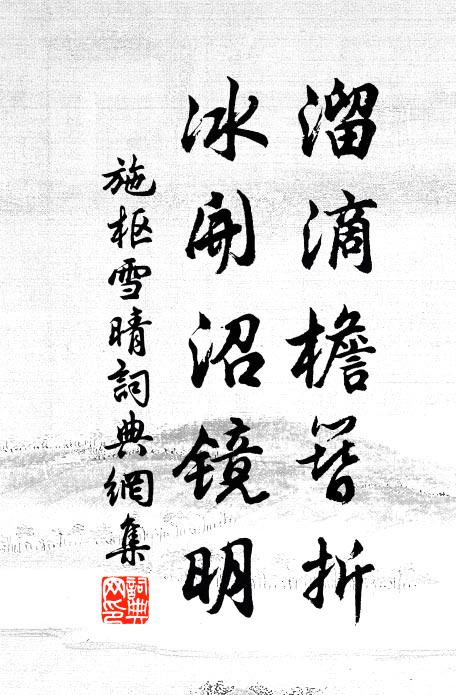 溜滴檐簪折
冰開沼鏡明
施枢雪晴詞典網集
詞典網印